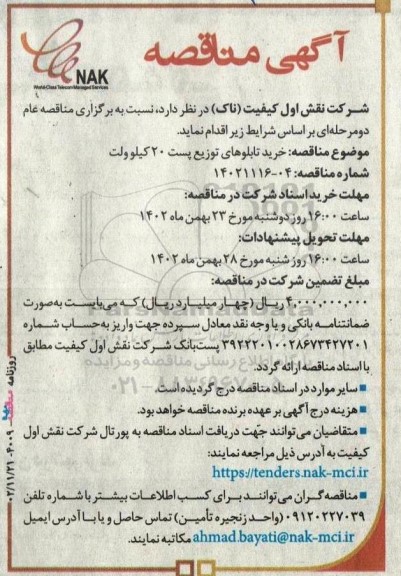 آگهی مناقصه
NAK
World-Class Telecom Managed Services
شرکت نقش اول کیفیت (ناک) در نظر دارد، نسبت به برگزاری مناقصه عام
دومرحله‌ای بر اساس شرایط زیر اقدام نماید.
موضوع مناقصه: خرید تابلوهای توزیع پست ۲۰ کیلو ولت
شماره مناقصه: ۰۴-۱۴۰۲۱۱۱۶
مهلت خرید اسناد شرکت در مناقصه:
ساعت ۱۶:۰۰ روز دوشنبه مورخ ۲۳ بهمن ماه ۱۴۰۲
مهلت تحویل پیشنهادات:
ساعت ۱۶:۰۰ روز شنبه مورخ ۲۸ بهمن ماه ۱۴۰۲
مبلغ تضمین شرکت در مناقصه:
۴,۰۰۰,۰۰۰,۰۰۰ ریال (چهار میلیارد ریال) که می‌بایست به‌صورت
ضمانتنامه بانکی و یا وجه نقد معادل سپرده جهت واریز به‌حساب شماره
۳۹۲۲۲۰۱۰۰۲۸۶۷۳۴۲۷۲۰۱ پست‌بانک شرکت نقش اول کیفیت مطابق
با اسناد مناقصه ارائه گردد.
■ سایر موارد در اسناد مناقصه درج گردیده است.
■ هزینه درج آگهی بر عهده برنده مناقصه خواهد بود.
■ متقاضیان می‌توانند جهت دریافت اسناد مناقصه به پورتال شرکت نقش اول
کیفیت به آدرس ذیل مراجعه نمایند:
https://tenders.nak-mci.ir
■ مناقصه‌گران می‌توانند برای کسب اطلاعات بیشتر با شماره تلفن
۰۹۱۲۰۲۲۷۰۳۹ (واحد زنجیره تأمین) تماس حاصل و یا با آدرس ایمیل
ahmad.bayati@nak-mci.ir مکاتبه نمایند.
روزنامه
۰۲/۱۱/۲۱ ۴۰۰۹